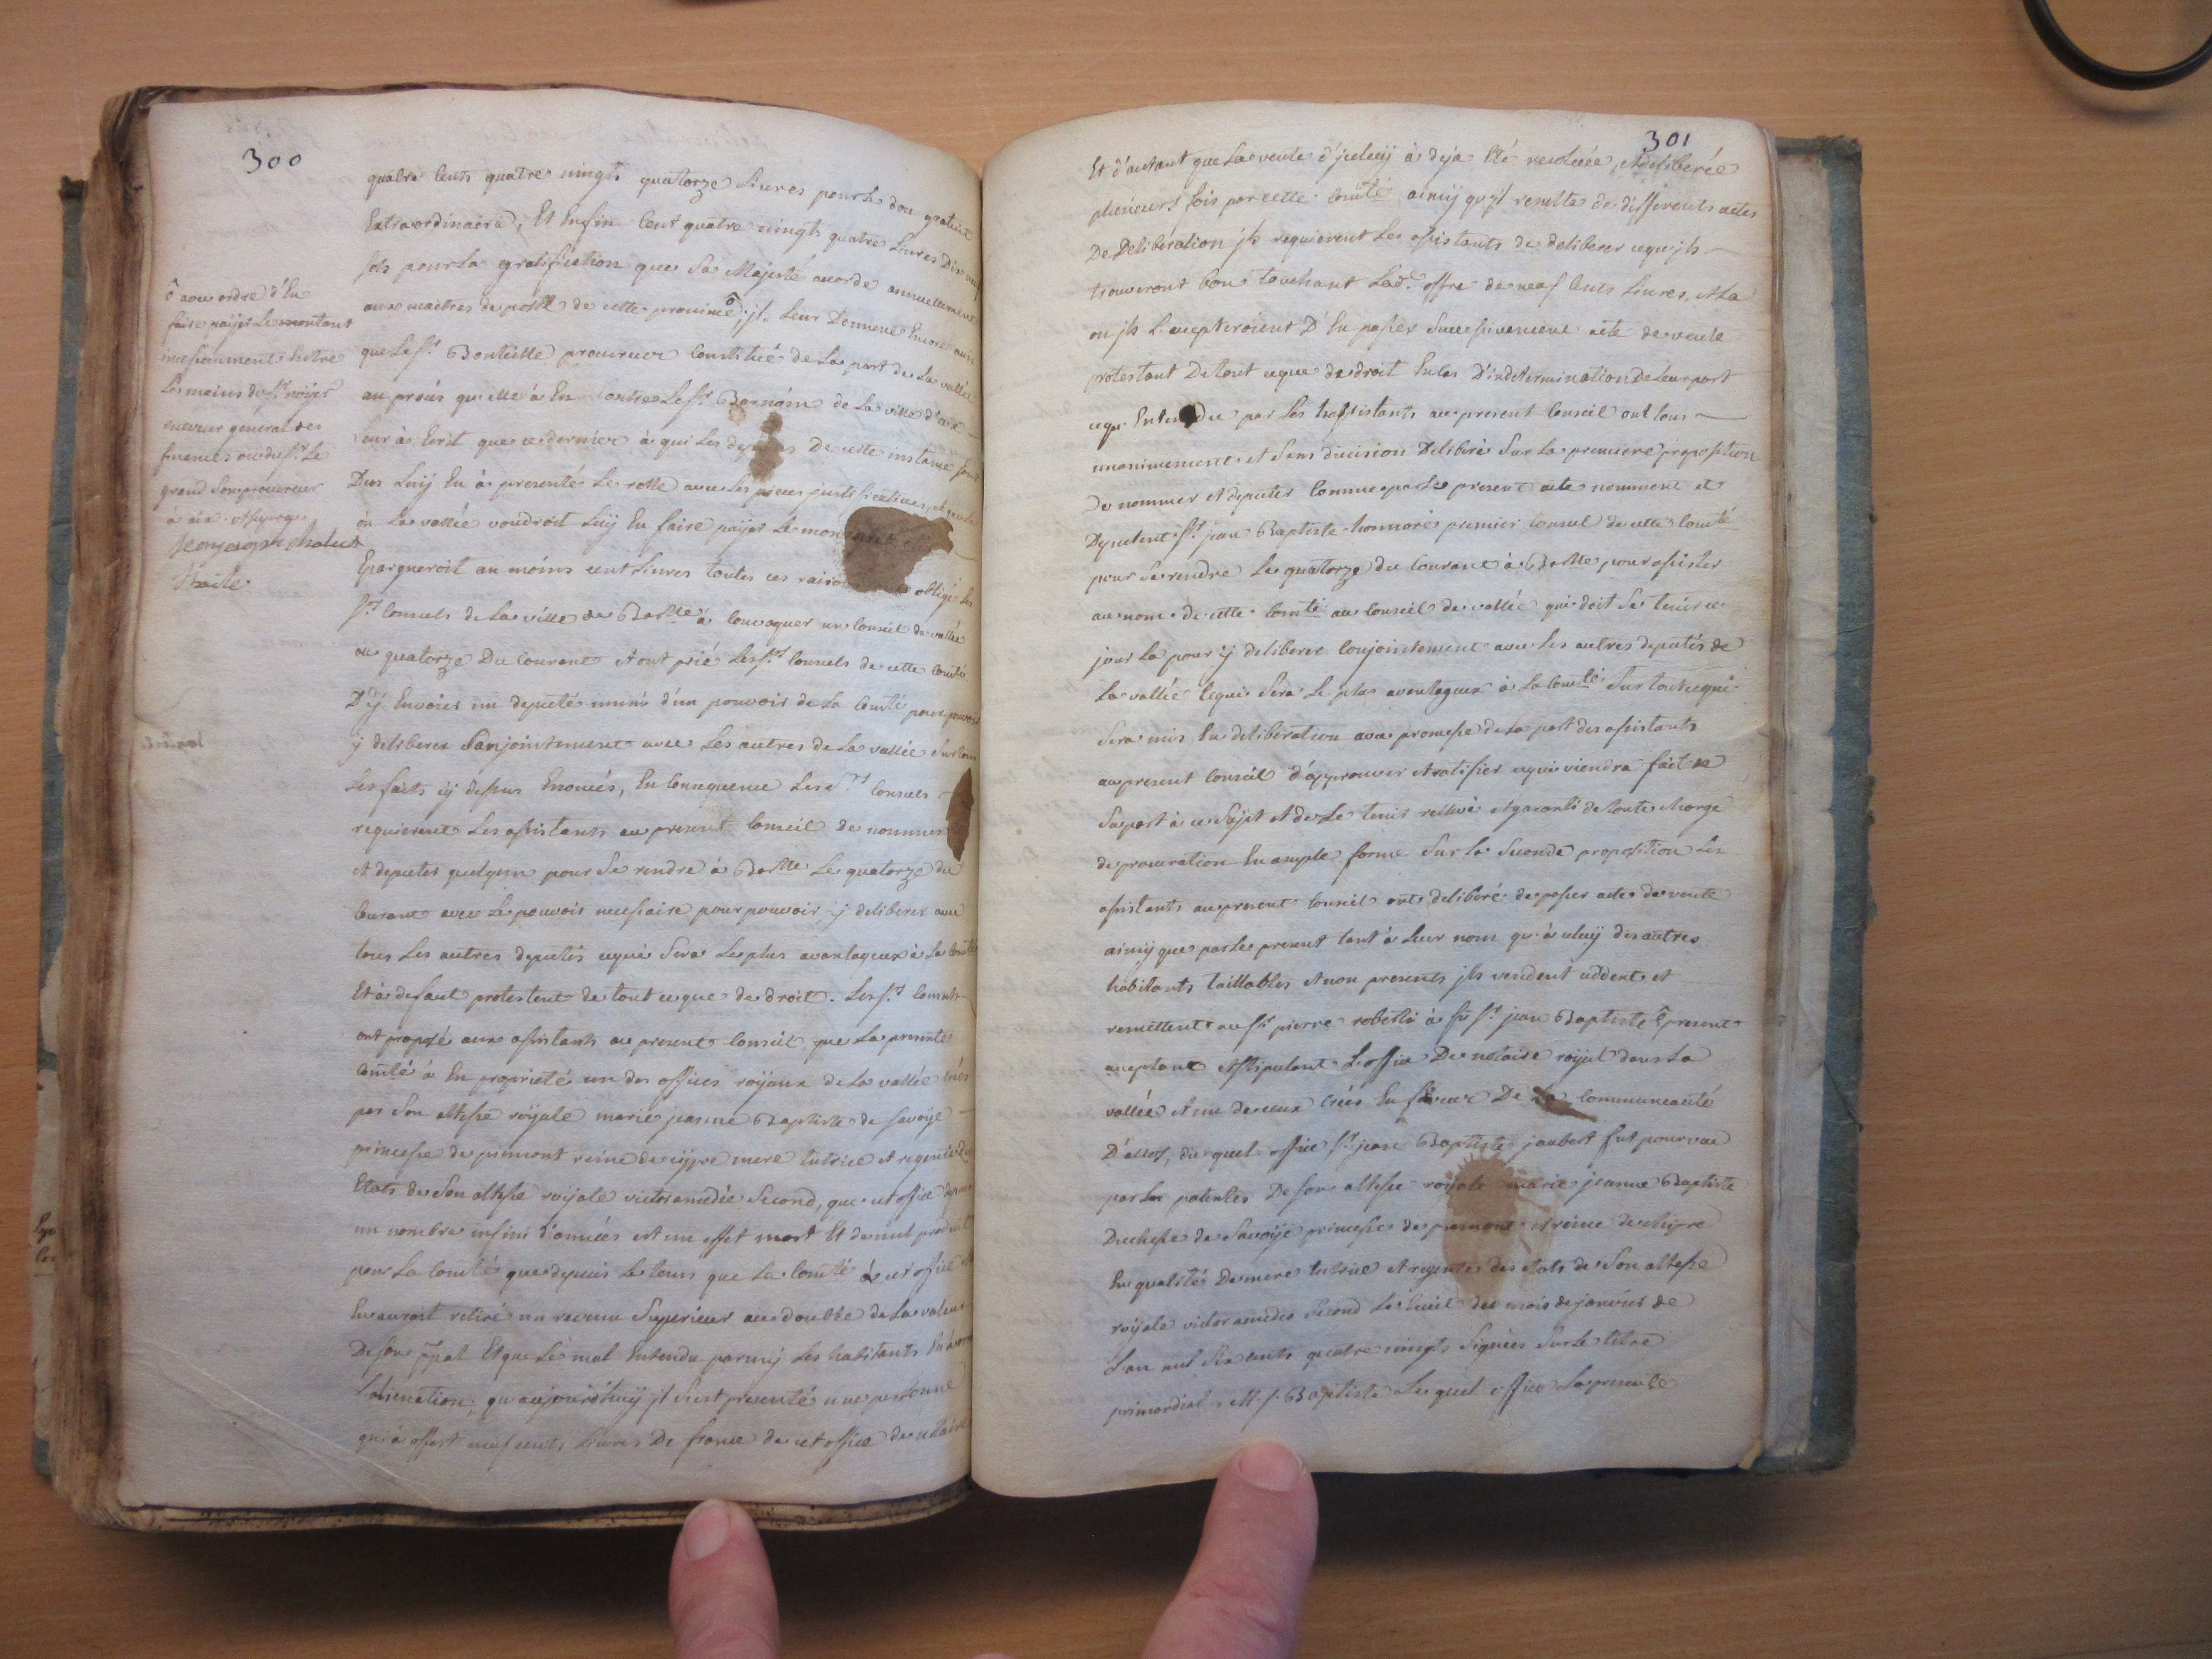 300
quatre cents quatre vingts quatorze Livres pour Le don gratuit
Extraordinaire, Et Enfin Cent quatre vingts quatre Livres Dix neuf
sols pour La gratification que Sa Majesté accorde annuellement
aux maitres de poste de cette province ô, jls Leur Donnent Encore avis
que Le Sr. Bonteille procureur Constitué de La part de La vallée
au procés qu'elle à Eu Contre Le Sr. Barnoin de La ville d'aix
Leur à Ecrit que ce dernier à qui Les depens De cette instance sont
Dus Luij En à presenté Le rolle avec Les pieces justificatives, et que
ou La vallée voudroit Luij En faire paijer Le
Epargneroit au moins cent Livres toutes ces obligé Les
Srs. Consuls de La ville de Colmars à Convoquer un Conseil de vallée
au quatorze Du Courant et ont prié Les Srs. Consuls de cette Comté
D'ij Envoier un deputé muni d'un pouvoir de La Comté pour pouvoir
ij deliberer Conjointement avec Les autres de La vallée Sur tous
Les faits cij dessus Enoncés, En Consequence Lesd. Srs Consuls
requierent Les assistants au present Conseil de nommer
et deputer quelqun pour Se rendre à Le quatorze du
Courant avec Le pouvoir necessaire pour pouvoir ij deliberer avec
tous Les autres deputés cequi Sera Le plus avantageux à La Comté
Et à defaut protestent de tout ceque de droit. Les Srs. Consuls
ont proposé aux assistants au present Conseil que La presente
Comté à En proprieté un des offices roijaux de La vallée créés
par Son altesse roijale marie jeanne Baptiste de Savoije
princesse de piemont reine de cijpre mere tutrice et regente des
Etats de Son altesse roijale victor amedée Second, que cet office depuis
un nombre infini d'années est un effet mort Et de nul produit
pour La Comté que depuis Le tems que La Comté à cet office Elle
En auroit retiré un revenu Superieur au double de La valeur
De Son Et que Le mal Entendu parmij Les habitants En à
L'alienation, qu'aujourd'huij jl S'est presenté une personne
qui à offert neuf cents Livres De france de cet office de notaire
ô avec ordre d'En
faire paijer Le montant
incessamment Entre
Les mains du Sr.
receveur general des
finances ou du Sr. Le
grand Son procureur
à aix
301
Et d'autant que La vente d'jceluij à deja Eté resolüe, et deliberée
plusieurs fois par cette Comté ainsij qu'jl resulte de differents actes
De Deliberation jls requierent Les assistants de deliberer ceque jls
trouveront bon touchant Lade. offre de neuf Cents Livres, et La
ou jls L'accepteroient D'En passer Successivement acte de vente
protestant De tout ceque de droit En Cas D'indetermination De Leur part
cequ'Entendu par Les assistants au present Conseil ont tous
unanimement et Sans division Deliberé Sur La premiere proposition
De nommer et deputer Comme par Le present acte nomment et
Deputent Sr. jean Baptiste honnoré premier Consul de cette Comté
pour Se rendre Le quatorze du Courant à pour assister
au nom de cette Comté au Conseil de vallée qui doit Se tenir ce
jour La pour ij deliberer Conjointement avec Les autres deputés de
La vallée cequi Sera Le plus avantageux à La Comté Sur tout cequi
Sera mis En deliberation avec promesse de La part des assistants
au present Conseil d'approuver et ratifier cequi viendra fait de
Sa part à ce Sujet et de Le tenir rellevé et garanti de toute charge
de procuration En ample forme Sur La Seconde proposition Les
assistants au present Conseil ont deliberé de passer acte de vente
ainsij que par Le present tant à Leur nom qu'à celuij des autres
habitants taillables et non presents jls vendent ceddent et
remettent au Sr. pierre roberti à fü Sr. jean Baptiste present
acceptant et stipulant L'office De notaire roijal dans La
vallée et un de ceux créés En faveur De La Communeauté
D'allos, du quel office Sr. jean Baptiste jaubert fut pourvu
par Les patentes De Son altesse roijale marie jeanne Baptiste
Duchesse de Savoije princesse de piemont et reine de chipre
En qualité De mere tutrice et regente des Etats de Son altesse
roijale victor amedeo Second Le huit du mois de janvier de
L'an mil Six cents quatre vingts Signées Sur Le titre
primordial, M. j. Baptiste Lequel office La presente